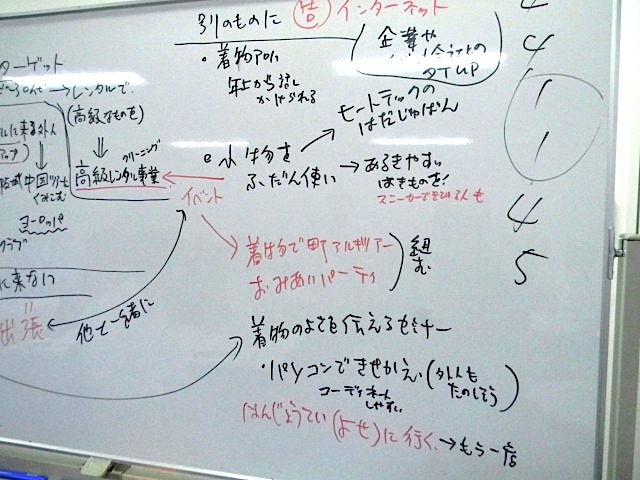 別のものに
告 インターネット
・着物
年上から話し
かけられる
企業や
タイUP
ターゲット
→レンタルで
(高級なものを)
クリーニング
高級レンタル事業
イベント
小物を
ふだん使い
ヒートテックの
はだじゅばん
あるきやすい
はきものを!
スニーカーで
中国ツアー
ヨーロッパ
クラブ
に来ない
出張
他と一緒に
着物で町
おみあいパーティ
組む
着物のよさを伝えるセミナー
・パソコンできせかえ(外人も
たのしそう)
コーディネート
しやすい
はんじょうてい(よせ)に行く→もう一店
4
1
1
4
5